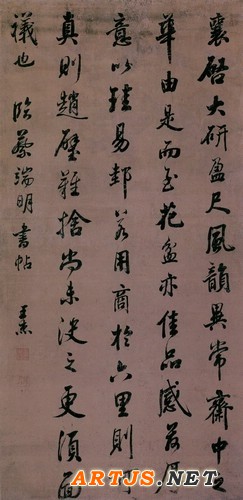 襄啓大研盈尺風韻異常齋中之
華由是而至花盆亦佳品感荷厚
意以珪易邽若用商於六里則可
真則趙璧難捨尚未決之更須面
議也 臨蔡端明書帖 王杰
ARTJS.NET